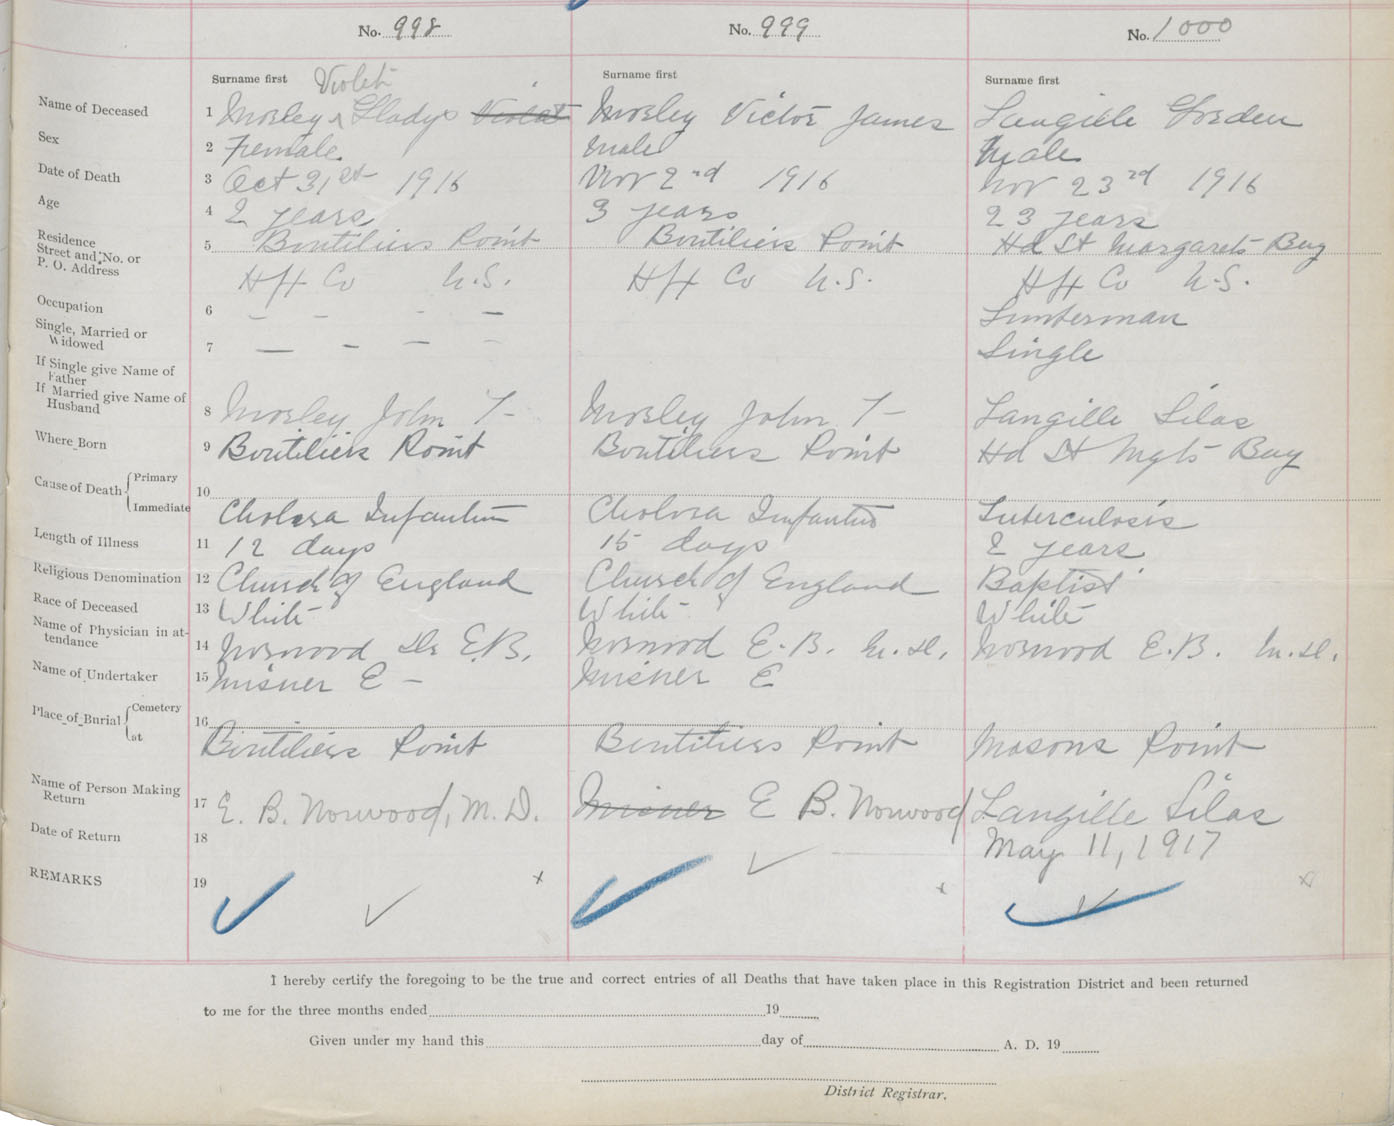 No. 998 No. 999 No. 1000
Surname first Violet Surname first Surname first
Name of Deceased 1 Mosley ^ Gladys Violet Mosley Victor James Langille Gorden
Sex 2 Female Male Male
Date of Death 3 Oct 31st 1916 Nov 2nd 1916 Nov 23rd 1916
Age 4 2 years 3 years 23 years
Residence
Street and No. or
P. O. Address 5 Boutiliers Point Boutiliers Point Hd St Margarets Bay
Hfx Co N.S. Hfx Co N.S. Hfx Co N.S.
Occupation 6 – – - – Lumberman
Single, Married or
Widowed 7 — – — - Single
If Single give Name of
Father
If Married give Name of
Husband 8 Mosley John T- Mosley John T- Langille Silas
Where Born 9 Boutiliers Point Boutiliers Point Hd St Mgts Bay
Cause of Death { Primary 10
Immediate Cholera Infantum Cholera Infantum Tuberculosis
Length of Illness 11 12 days 15 days 2 years
Religious Denomination 12 Church of England Church of England Baptist
Race of Deceased 13 White White White
Name of Physician in at-
tendance 14 Norwood Dr E.B. Norwood E.B. M.D. Norwood E.B. M.D.
Name of Undertaker 15 Misner E - Misner E
Place of Burial { Cemetery 16
at Boutiliers Point Boutiliers Point Masons Point
Name of Person Making
Return 17 E. B. Norwood, M.D. Misner E B. Norwood Langille Silas
Date of Return 18 May 11, 1917
REMARKS 19 ✓ ✓ x ✓ ✓ x ✓ ✓ x
I hereby certify the foregoing to be the true and correct entries of all Deaths that have taken place in this Registration District and been returned
to me for the three months ended 19
Given under my hand this day of A. D. 19
District Registrar.